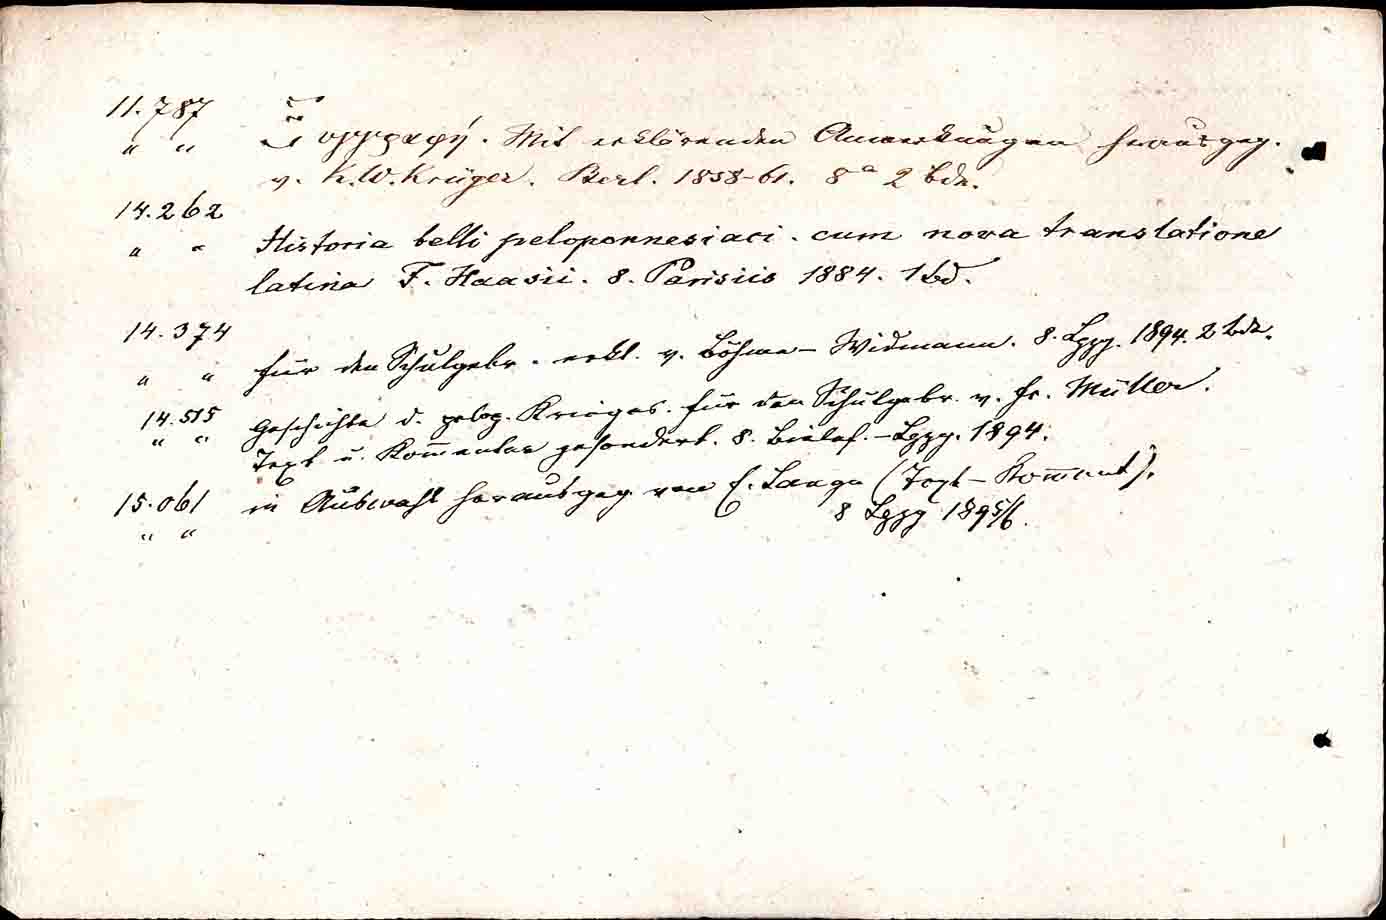 11.787
" " Ξυγγραφή. Mit erklärenden Anmerkungen herausgeg.
v. K. W. Krüger. Berl. 1858-61. 8° 2 Bde.
14.262
" " Historia belli peloponnesiaci. cum nova translatione
latina F. Haasii. 8. Parisiis 1884. 1 Bd.
14.374
" " für den Schulgebr. erkl. v. Böhme-Widmann. 8. Lpzg. 1894. 2 Bde.
14.515 Geschichte d. pelop. Krieges. für den Schulgebr. v. Fr. Müller.
" " Text u. Kom̄entar gesondert. 8. Bielef.-Lpzg. 1894.
15.061 in Auswahl herausgeg. von E. Lange (Text-Kom̄ent).
" " 8 Lpzg 1895/6.